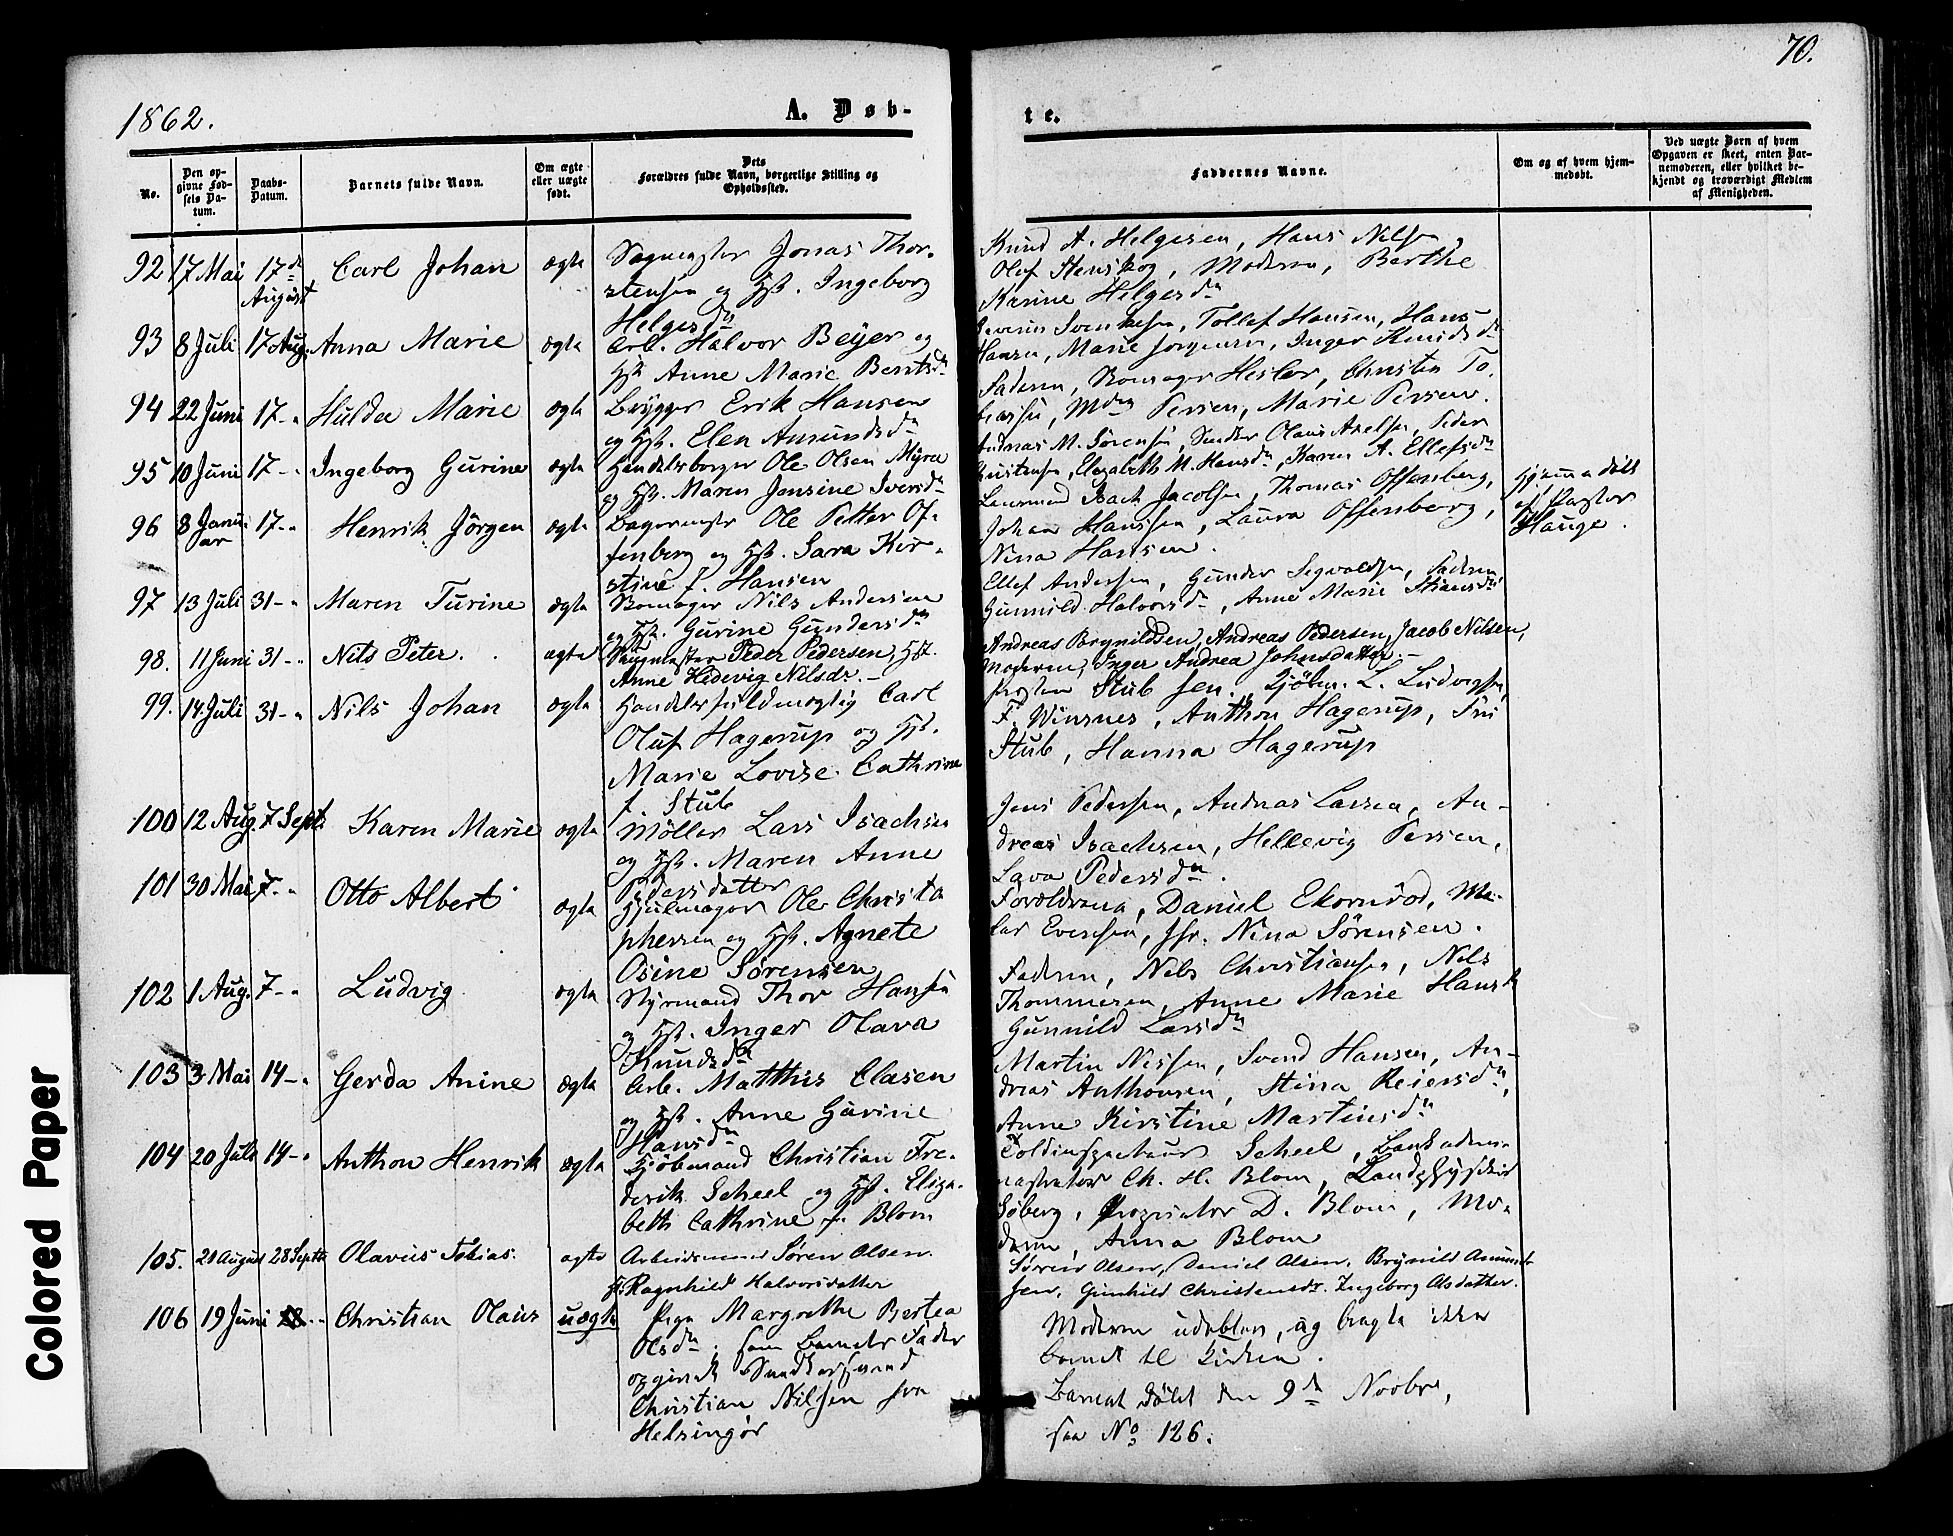 70.
1862.
A. Døb-
te.
No.
Den opgivne Fødsels Datum.
Daabs-Datum.
Barnets fulde Navn.
Om ægte eller uægte født.
Dets Forældres fulde Navn, borgerlige Stilling og Opholdssted.
Faddernes Navne.
Om og af hvem hjemmedøbt.
Ved uægte Børn af hvem Opgaven er skeet, enten Barnemoderen, eller hvilket bekjendt og troværdigt Medlem af Menigheden.
92 17 Mai 17de August Carl Johan ægte
Jonas Thor-
stensen og Hst. Ingeborg
Helgesdn
Knud A. Helgesen, Hans Nilsen,
Olef Stenskog, Moderen, Berthe
Karine Helgesdn
93 8 Juli 17 Aug. Anna Marie ægte
Arb. Halvor Beyer og
Hst Anne Marie Berntsdn
Severin Svenkesen, Tollef Hansen, Hans
Hansen, Marie Jørgensen, Inger Knudsdn
94 22 Juni 17 -" Hulda Marie ægte
Brygger Erik Hansen
og Hst. Elen Amundsdn
Faderen, Hesler, Christen To-
biassen, Mdm Persen, Marie Persen.
95 10 Juni 17 -" Ingeborg Gurine ægte
Handelsborger Ole Olsen Myra
og Hst. Maren Jensine Iversdn
Andreas M. Sørensen, Olaus Axelsen, Peder
Elizabeth M. Hansdn, Karen A. Ellefsdn
96 8 Januar 17 -" Henrik Jörgen ægte
Bagermester Ole Petter Of-
fenberg og Hst. Sara Kir-
stine f. Hansen
Lensmand Isach Jacobsen, Thomas Offenberg,
Johan Hanssen, Laura Offenberg,
Nina Hansen.
Hjemmedöbt
af Pastor
Hauge.
97 13 Juli 31 -" Maren Turine ægte
Nils Andersen
og Hst. Gurine Gundersdn
Ellef Andersen, Gunder Sigvaldsen, Faderen
Gunnild Halvorsdn, Anne Marie
98. 11 Juni 31 -" Nils Peter. ægte
Peder Pedersen, Hst.
Anne Hedevig Nilsdr. -
Andreas Brynildsen, Andreas Pedersen, Jacob Nilsen,
Moderen, Inger Andrea Johnsdatter. -
99. 14 Juli 31 -" Nils Johan ægte
Handelsfuldmægtig Carl
Oluf Hagerup og Hst.
Marie Lovise Cathrine
f. Stub
Stub sen., Kjöbm. L. Ludvigsen,
F. Winsnes, Anthon Hagerup, Fru
Stub, Hanna Hagerup
100 12 Aug. 7 Sept. Karen Marie ægte
Möller Lars Isachsen
og Hst. Maren Anne
Pedersdatter
Jens Pedersen, Andreas Larsen, An-
dreas Isachsen, Hellevig Persen,
Lava Pedersdn.
101 30 Mai 7 -" Otto Albert ægte
Hjulmager Ole Christo
phersen og Hst. Agnete
Osine Sørensen
Forældrene, Daniel Ekornröd, Ma-
ler Evensen, Jfr. Nina Sörensen.
102 1 Aug. 7 -" Ludvig ægte
Styrmand Thor Hansen
og Hst. Inger Olava
Knudsdn
Faderen, Nils Christiansen, Nils
Thommesen, Anne Marie
Gunnild Larsdn
103 3 Mai 14 -" Gerda Anine ægte
Arb. Matthis Clasen
og Hst. Anne Gurine
Hansdn
Martin Nissen, Svend Hansen, An-
dreas Anthonsen, Stina Reiersdn,
Anne Kirstine Martinsdn
104 20 Juli 14 -" Anthon Henrik ægte
Kjöbmand Christian Fre-
derik Scheel og Hst. Eliza-
beth Cathrine f. Blom
Toldinspecteur Scheel, Bankadmi-
nistrator Ch. H. Blom, Landphysikus
Söberg, Proprietær D. Blom, Mo-
deren, Anna Blom
105. 21 August 28 Septbr Olavus Tobias. ægte
Arbeidsmand Søren Olsen.
H. Ragnhild Halvorsdatter
Sørén Olsen, Daniel Olsen, Brynild Amund-
sen, Gunhild Christensdr. Ingeborg Olsdatter.
106 19 Juni Christian Olaus uægte
Pige Margrethe Bertea
Olsdn; som Barnets Fader
opgivet
Christian Nilsen fra
Helsingør
Moderen udeblev, og bragte ikke
Barnet til Kirken.
Barnet döbt den 9de Novbr,
see No 126.
Colored Paper